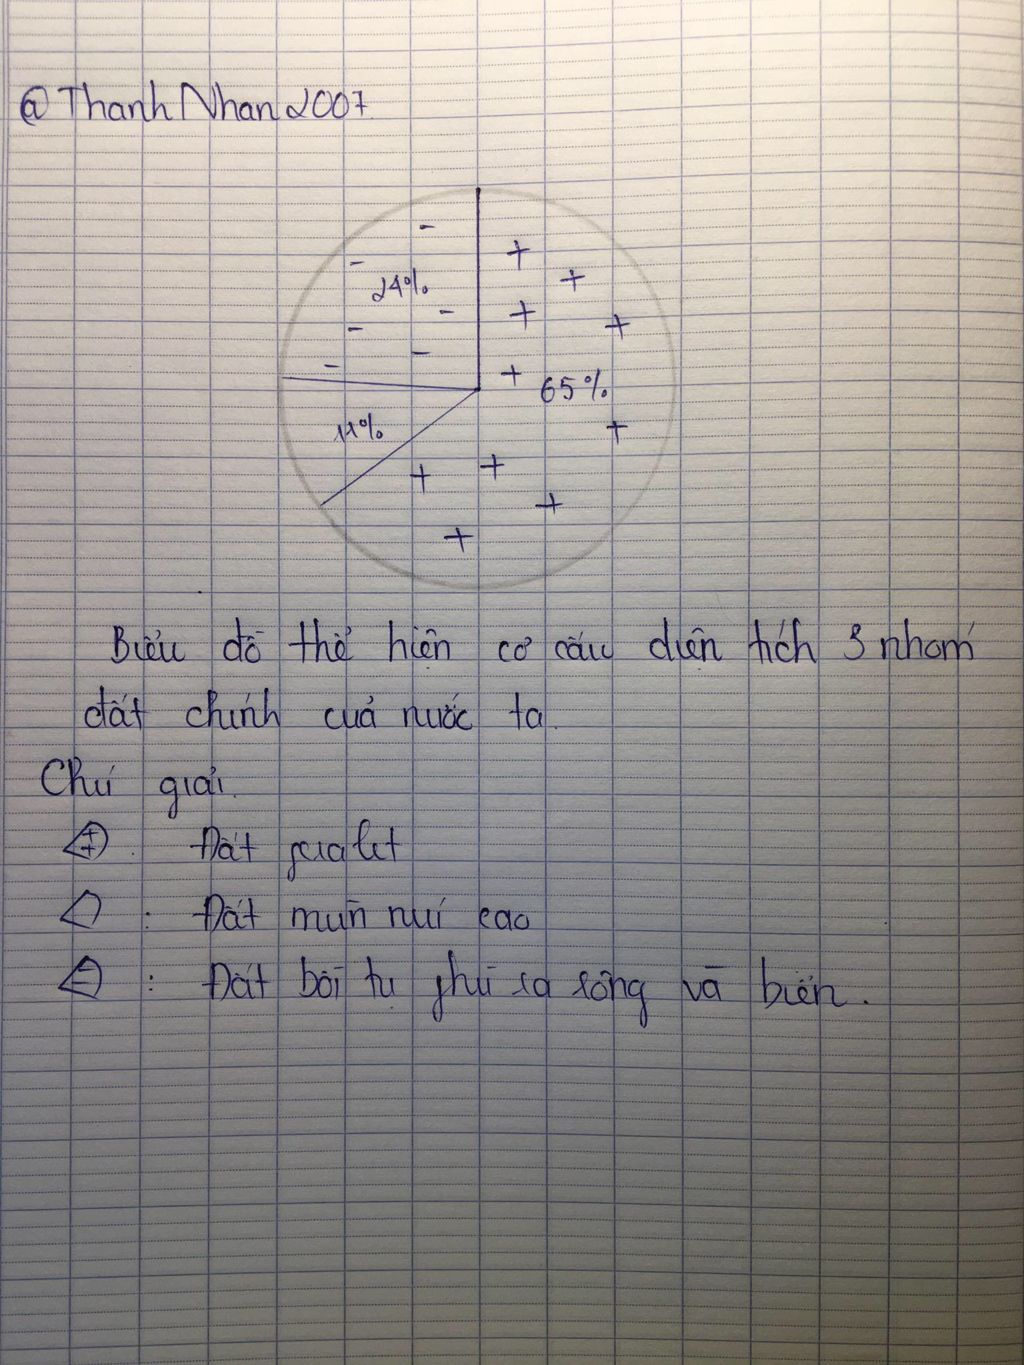 @ThanhNhan2007
24%
65%
11%
Biểu đồ thể hiện cơ cấu diện tích 3 nhóm
đất chính của nước ta.
Chú giải.
: Đất feralit
: Đất mùn núi cao
: Đất bồi tụ phù sa sông và biển.